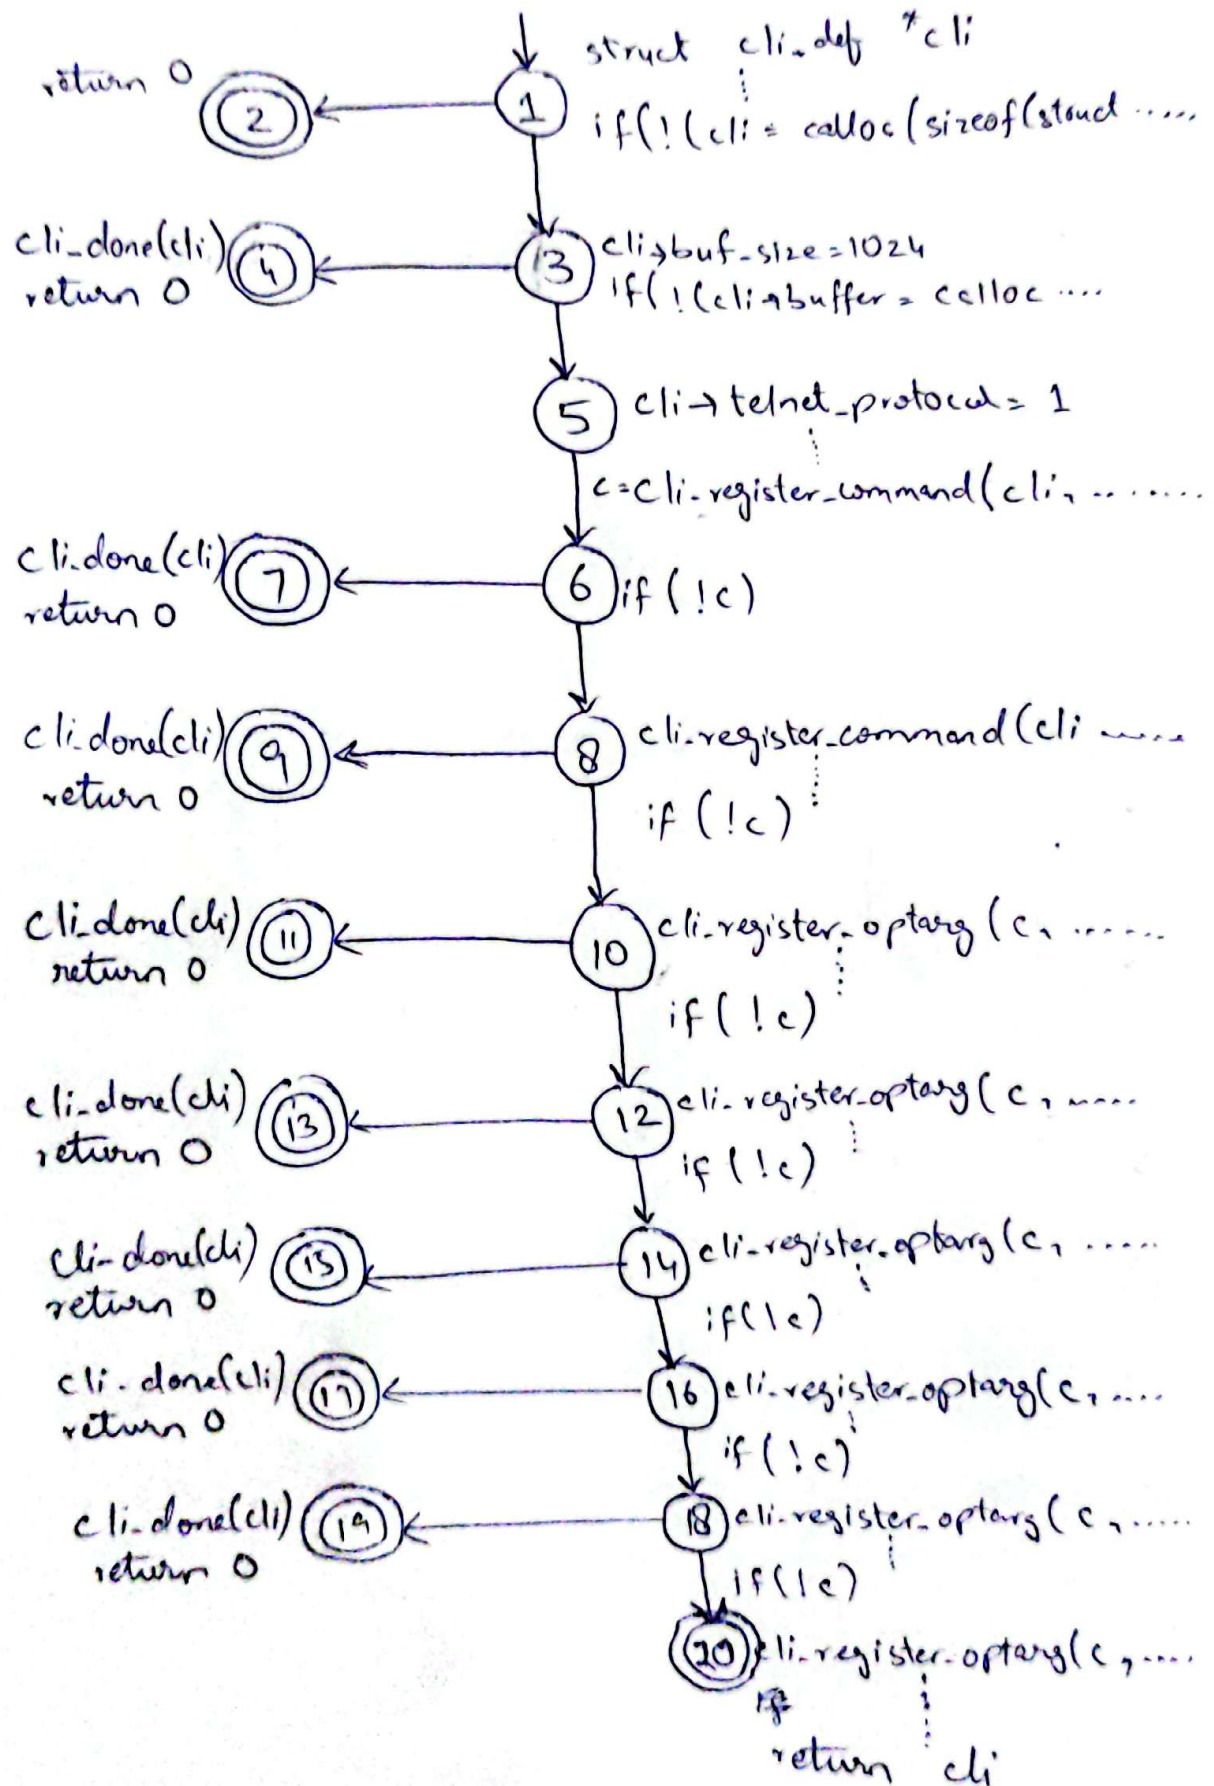 return 0
2
1
struct cli_def *cli
if(!(cli = calloc(sizeof(struct .....
cli_done(cli)
return 0
4
3
cli→buf_size=1024
if(!(cli→buffer = calloc ....
5
cli→telnet_protocol= 1
c=cli_register_command(cli, ........
cli_done(cli)
return 0
7
6
if(!c)
cli_done(cli)
return 0
9
8
cli_register_command(cli .....
if(!c)
cli_done(cli)
return 0
11
10
cli_register_optarg(c, ......
if(!c)
cli_done(cli)
return 0
13
12
cli_register_optarg(c, .....
if(!c)
cli_done(cli)
return 0
15
14
cli_register_optarg(c, .....
if(!c)
cli_done(cli)
return 0
17
16
cli_register_optarg(c, ....
if(!c)
cli_done(cli)
return 0
19
18
cli_register_optarg(c, .....
if(!c)
20
cli_register_optarg(c, ....
return cli